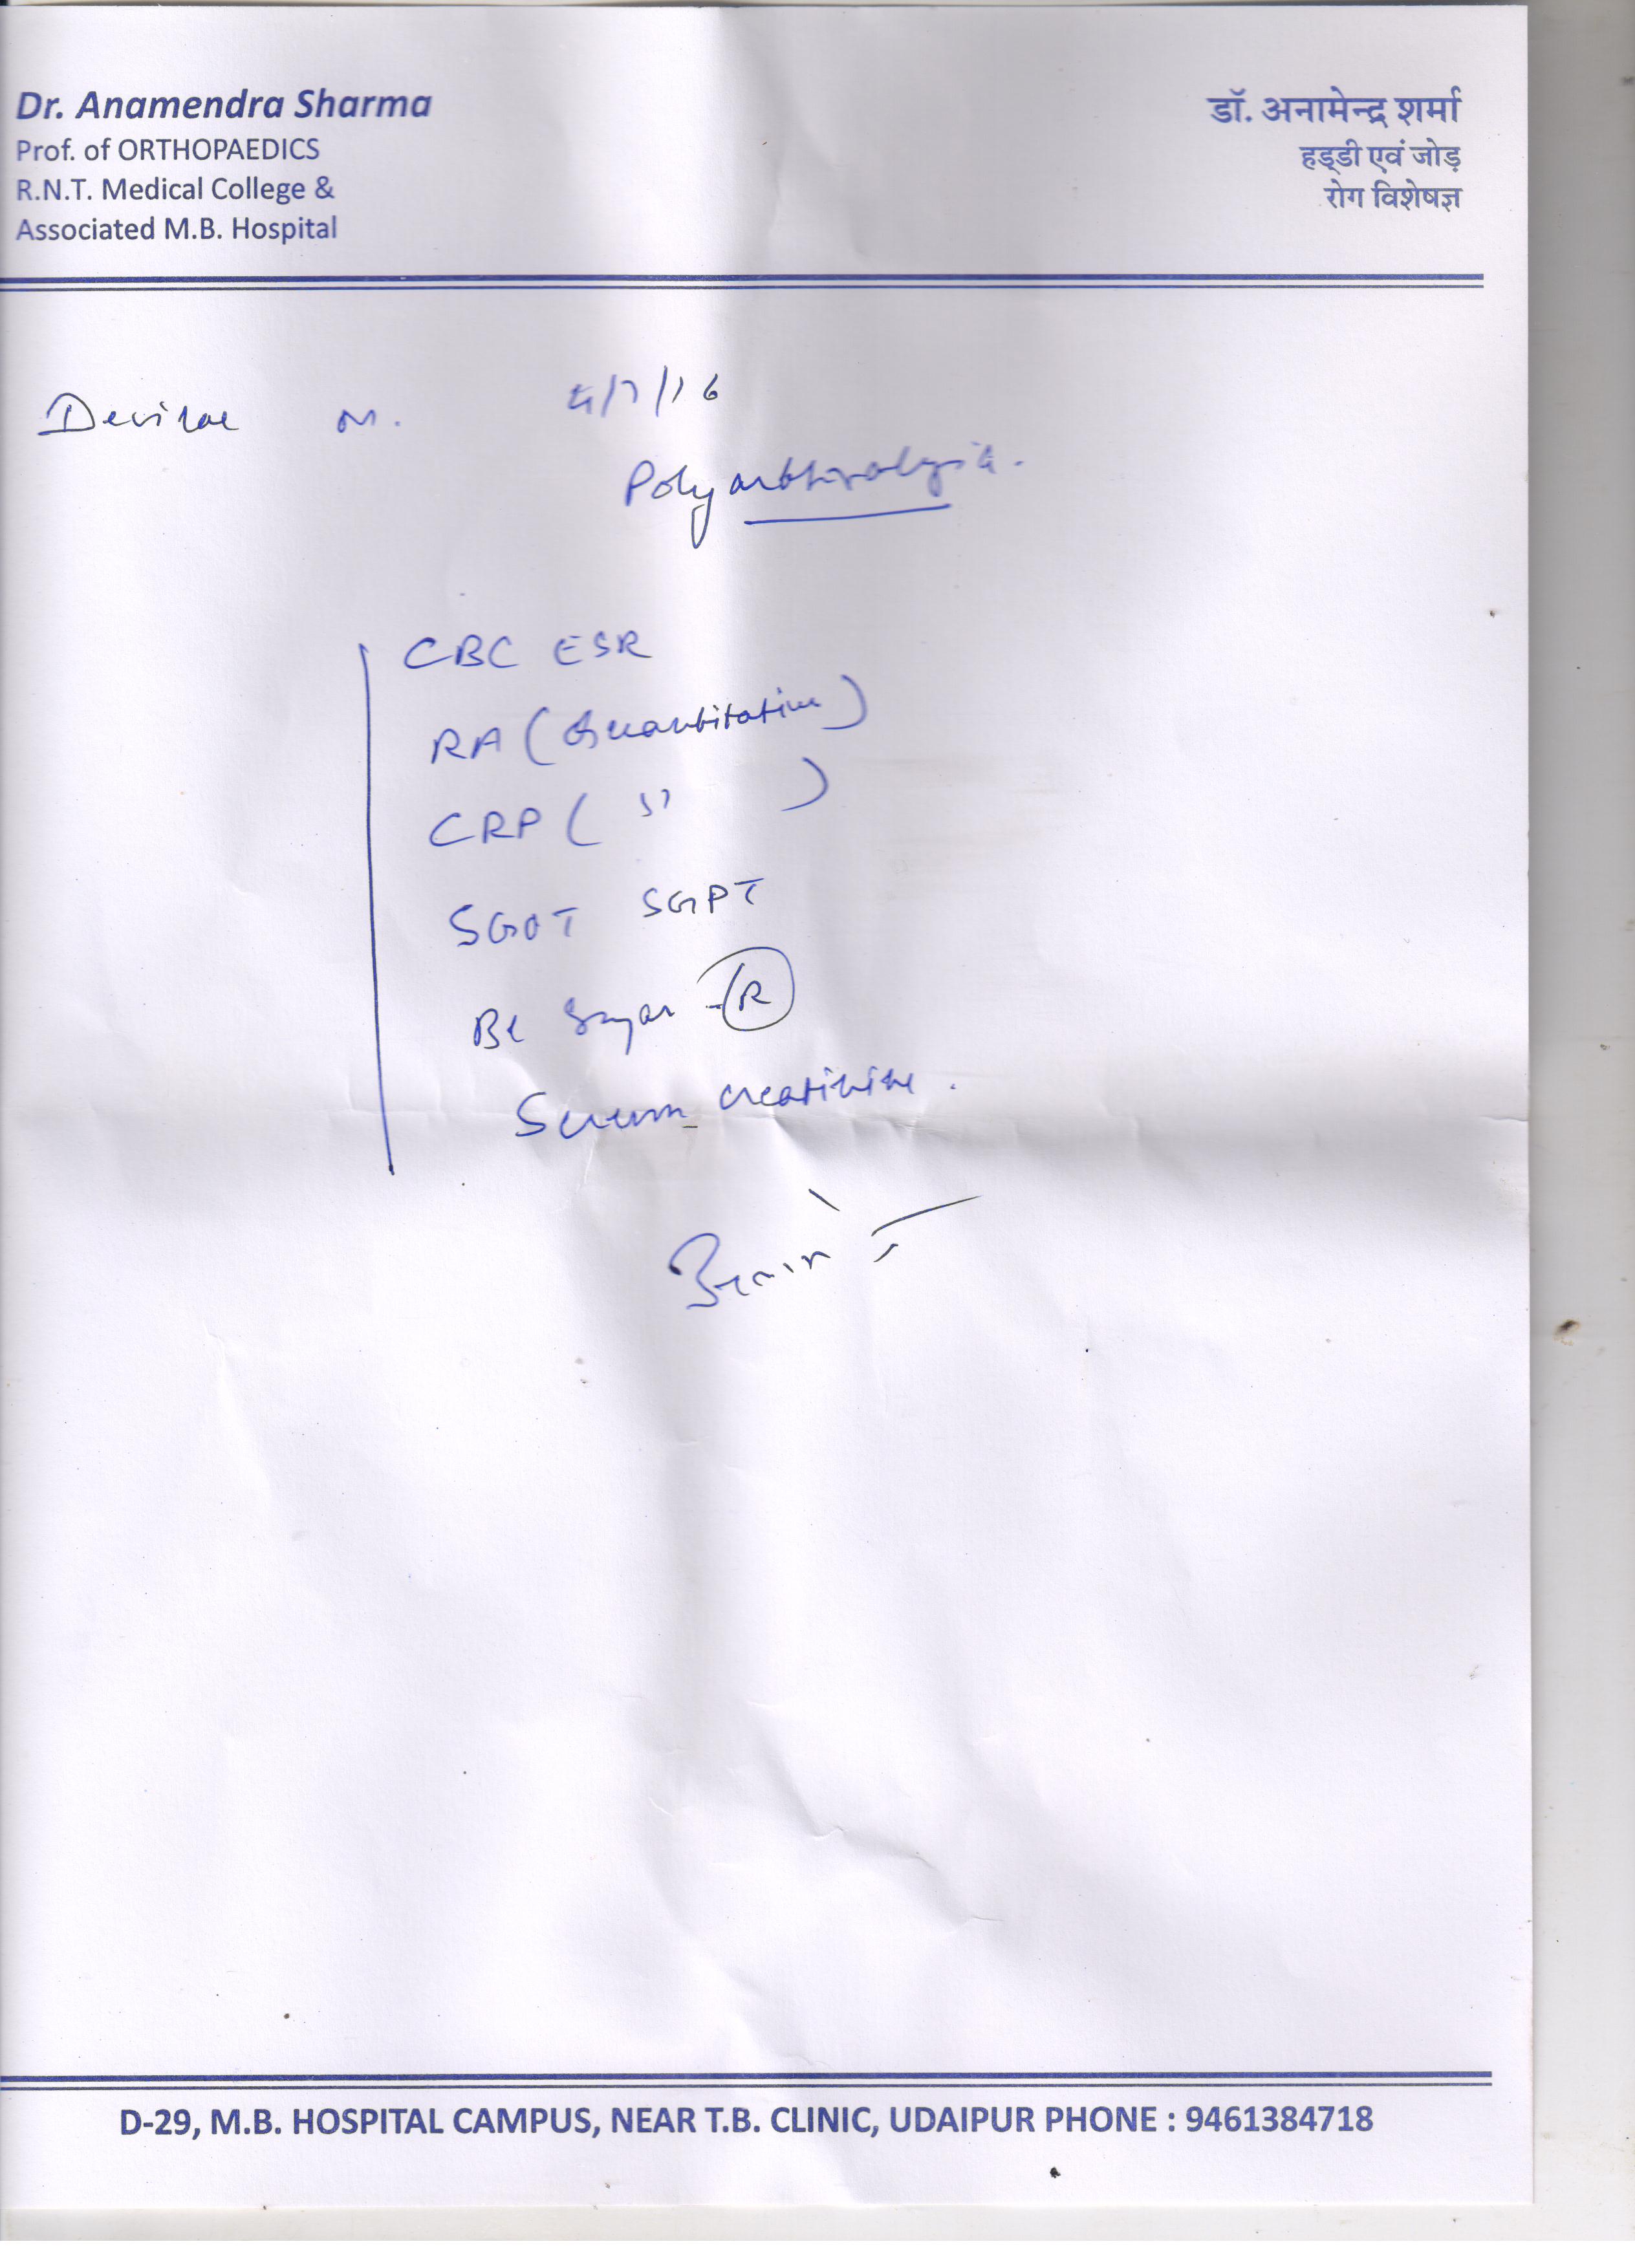 Dr. Anamendra Sharma
Prof. of ORTHOPAEDICS
R.N.T. Medical College &
Associated M.B. Hospital
डॉ. अनामेन्द्र शर्मा
हड्डी एवं जोड़
रोग विशेषज्ञ
M. 4/7/16
Polyarthralgia.
CBC ESR
RA (Quantitative)
CRP ( " )
SGOT SGPT
Bl Sugar - R
Serum creatinine.
D-29, M.B. HOSPITAL CAMPUS, NEAR T.B. CLINIC, UDAIPUR PHONE : 9461384718